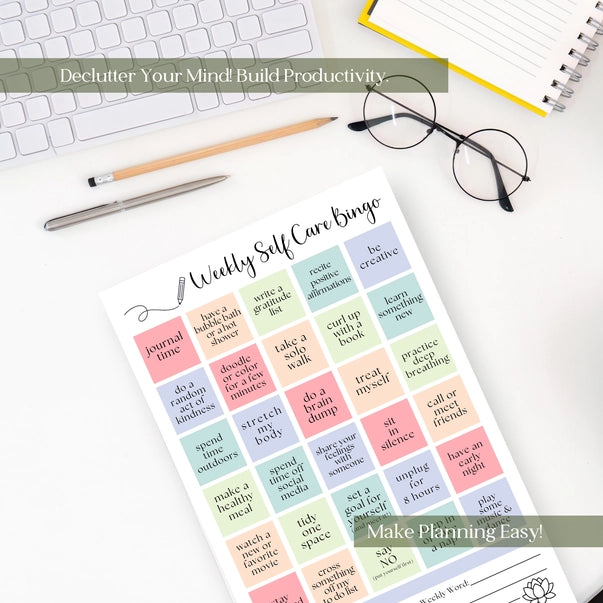 Declutter Your Mind! Build Productivity.
Weekly Self Care Bingo
journal
time
have a
bubble bath
or a hot
shower
write a
gratitude
list
recite
positive
affirmations
be
creative
do a
random
act of
kindness
doodle
or color
for a few
minutes
take a
solo
walk
curl up
with a
book
learn
something
new
spend
time
outdoors
stretch
my
body
do a
brain
dump
treat
myself
practice
deep
breathing
make a
healthy
meal
spend
time off
social
media
share your
feelings
with
someone
sit
in
silence
call or
meet
friends
watch a
new or
favorite
movie
tidy
one
space
set a
goal for
yourself
unplug
for
8 hours
have an
early
night
cross
something
off my
to do list
say
NO
(put yourself first)
a nap
play
some
music &
dance
Make Planning Easy!
Weekly Word: